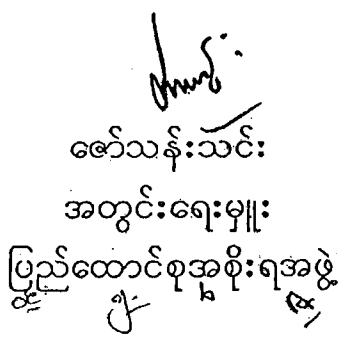 ဇော်သန်းသင်း
အတွင်းရေးမှူး
ပြည်ထောင်စုအစိုးရအဖွဲ့